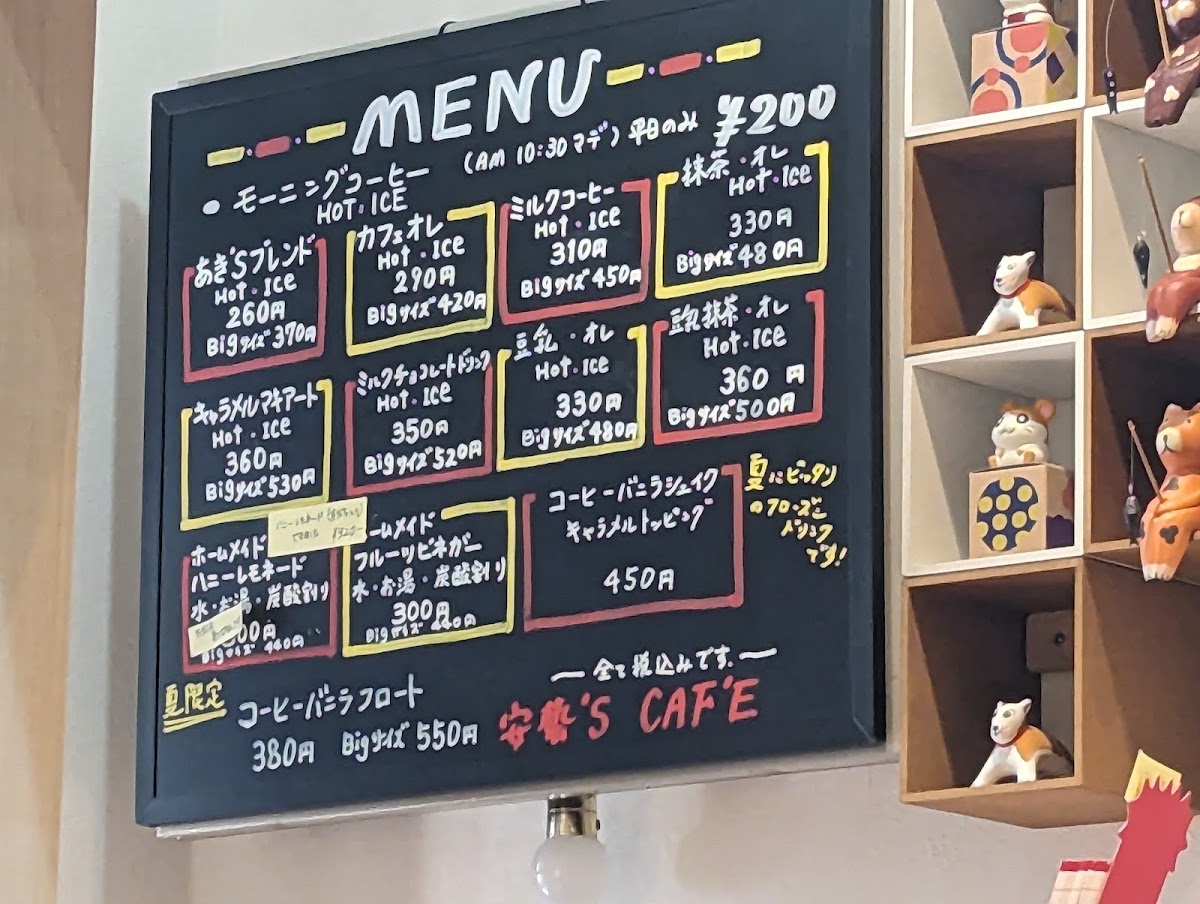 MENU
● モーニングコーヒー (AM 10:30マデ) 平日のみ ¥200
HOT・ICE
あぎ'Sブレンド
Hot・Ice
260円
Bigサイズ370円
カフェオレ
Hot・Ice
290円
Bigサイズ420円
ミルクコーヒー
Hot・Ice
310円
Bigサイズ450円
抹茶・オレ
Hot・Ice
330円
Bigサイズ480円
キャラメルマキアート
Hot・Ice
360円
Bigサイズ530円
ミルクチョコレートドリンク
Hot・Ice
350円
Bigサイズ520円
豆乳・オレ
Hot・Ice
330円
Bigサイズ480円
豆乳抹茶・オレ
Hot・Ice
360円
Bigサイズ500円
ホームメイド
ハニーレモネード
水・お湯・炭酸割り
00円
Bigサイズ 440円
ームメイド
フルーツビネガー
水・お湯・炭酸割り
300円
Bigサイズ 440円
コーヒーバニラシェイク
キャラメルトッピング
450円
夏にピッタリ
のフローズン
ドリンク
です!
夏限定
コーヒーバニラフロート
380円 Bigサイズ 550円
ー 全て税込みです. ー
安勢'S CAF'E